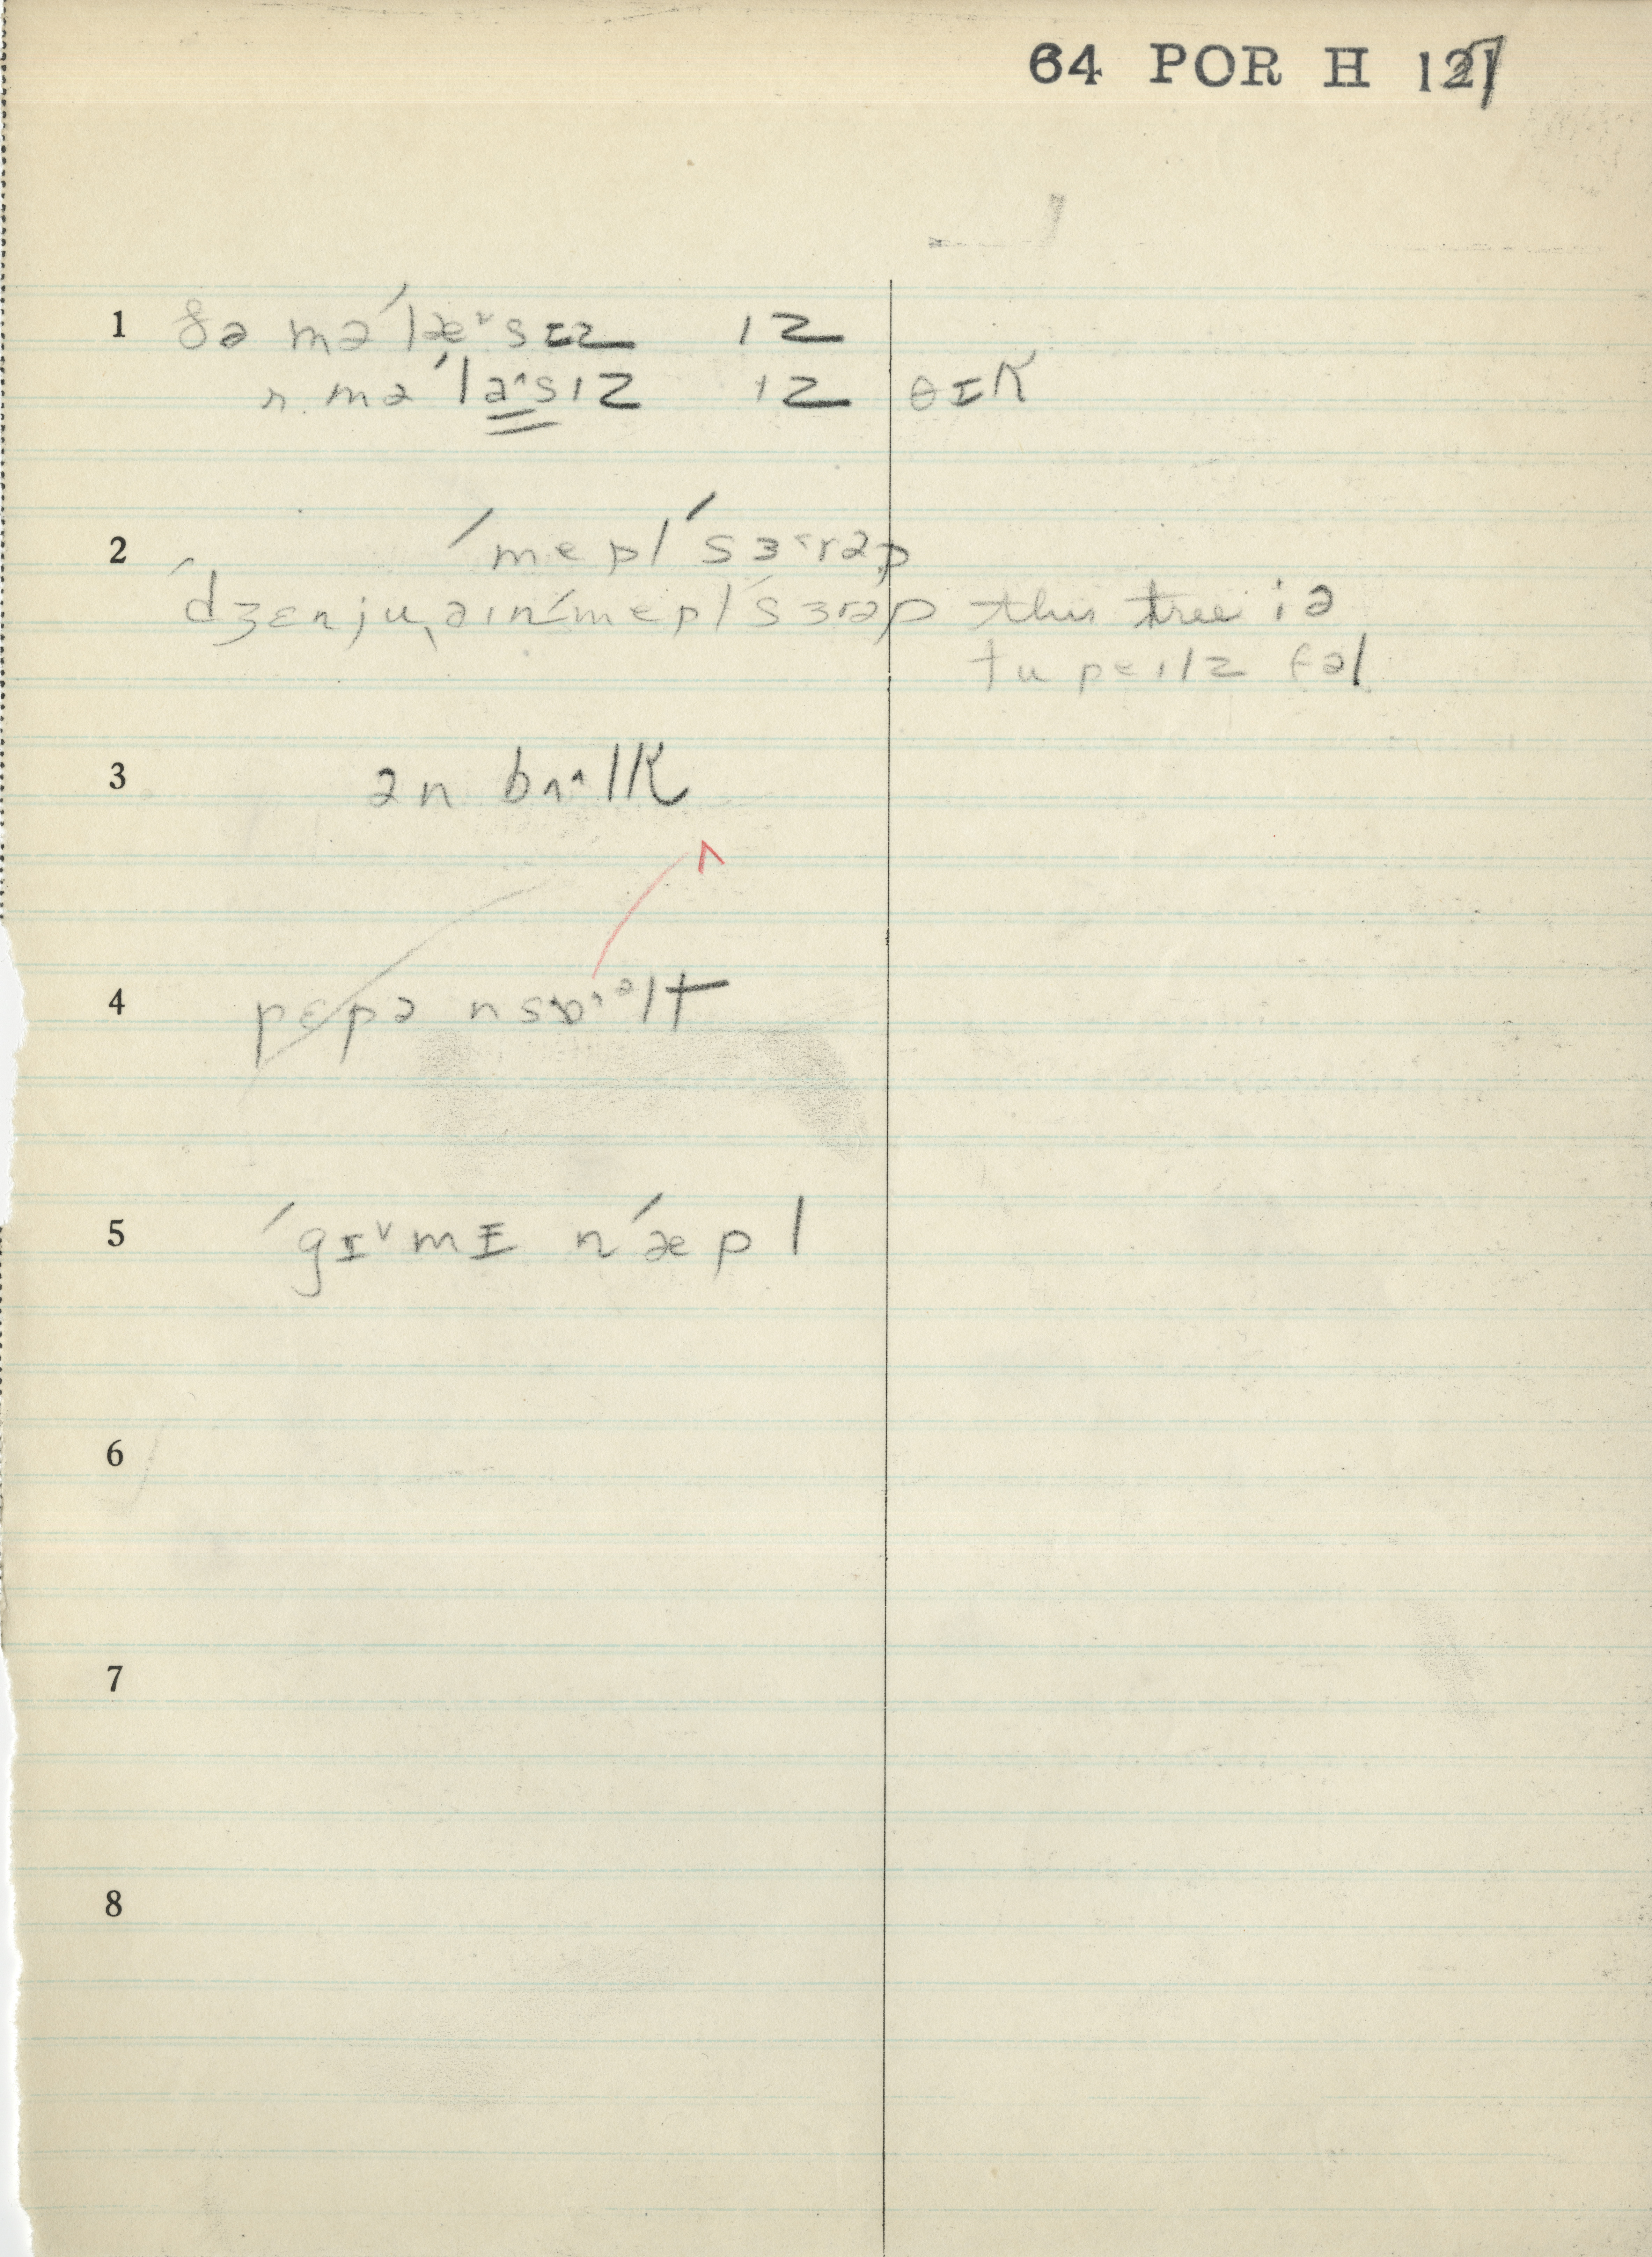 64 POR H 127
1 ðə mə ˈlæ˅sɪz ɪz
r. mə ˈla˄sɪz ɪz θɪk
2 ˈmepl ˈsɜ˂rəp
ˈdʒɛnjuˌaɪn ˈmepl ˈsɜrəp this tree iz
tu pe ɪlz fəl
3 ən bʌ˄lk
4 pepə n
5 ˈgɪ˅mɪ nˈæpl
6
7
8